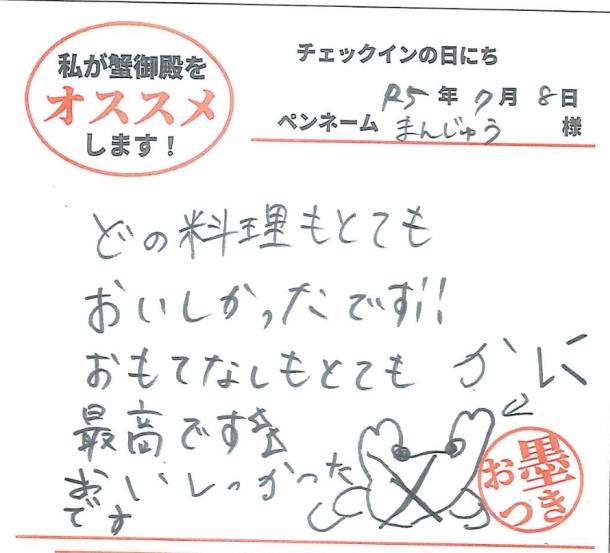 私が蟹御殿を
オススメ
します！
チェックインの日にち
R5年7月8日
ペンネーム まんじゅう 様
どの料理もとても
おいしかったです!!
おもてなしもとても
最高です☆☆
おいしっかった
です
かに
お墨
つき